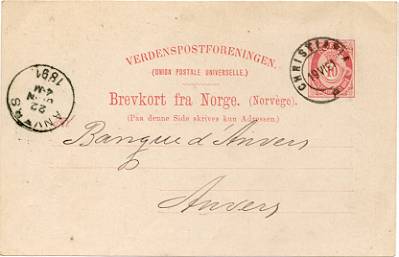 VERDENSPOSTFORENINGEN.
(UNION POSTALE UNIVERSELLE.)
Brevkort fra Norge. (Norvège).
(Paa denne Side skrives kun Adressen.)
CHRISTIANIA
19 VI
10
ANVERS
22
4-M
1891
Banque d'Anvers
Anvers